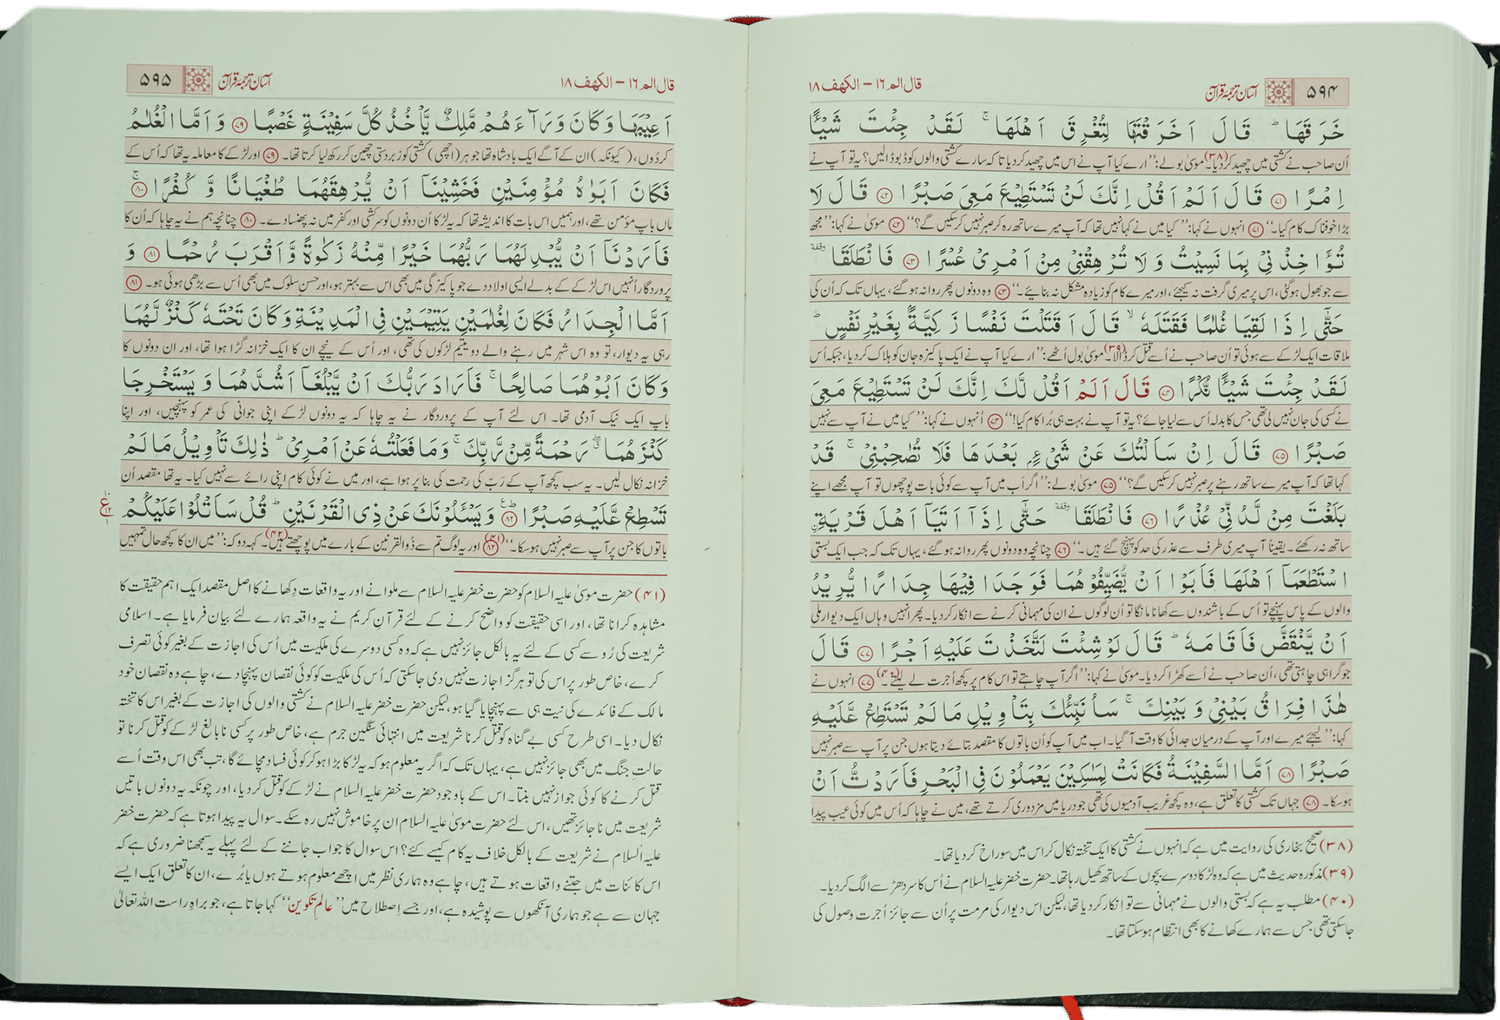 ۵۹۴ آسان ترجمۂ قرآن قال الم ۱۶ – الکھف ۱۸
خَرَقَهَا ؕ قَالَ اَخَرَقْتَهَا لِتُغْرِقَ اَهْلَهَا ۚ لَقَدْ جِئْتَ شَيْـًٔا
اُن صاحب نے کشتی میں چھید کردیا۔(۳۸) موسیٰ بولے: ’’ارے کیا آپ نے اس میں چھید کردیا تاکہ سارے کشتی والوں کو ڈبو ڈالیں؟ یہ تو آپ نے
اِمْرًا ﴿۷۱﴾ قَالَ اَلَمْ اَقُلْ اِنَّكَ لَنْ تَسْتَطِيْعَ مَعِيَ صَبْرًا ﴿۷۲﴾ قَالَ لَا
بڑا خوفناک کام کیا۔‘‘ ﴿۷۱﴾ انہوں نے کہا: ’’کیا میں نے کہا نہیں تھا کہ آپ میرے ساتھ رہ کر صبر نہیں کرسکیں گے؟‘‘ ﴿۷۲﴾ موسیٰ نے کہا: ’’مجھ
تُؤَاخِذْنِيْ بِمَا نَسِيْتُ وَلَا تُرْهِقْنِيْ مِنْ اَمْرِيْ عُسْرًا ﴿۷۳﴾ فَانْطَلَقَا ٝ وقفة
سے جو بھول ہوگئی، اس پر میری گرفت نہ کیجئے، اور میرے کام کو زیادہ مشکل نہ بنائیے۔‘‘ ﴿۷۳﴾ وہ دونوں پھر روانہ ہوگئے، یہاں تک کہ اُن کی
حَتّٰۤى اِذَا لَقِيَا غُلٰمًا فَقَتَلَهٗ ۙ قَالَ اَقَتَلْتَ نَفْسًا زَكِيَّةًۢ بِغَيْرِ نَفْسٍ ؕ
ملاقات ایک لڑکے سے ہوئی تو اُن صاحب نے اُسے قتل کرڈالا۔(۳۹) موسیٰ بول اُٹھے: ’’ارے کیا آپ نے ایک پاکیزہ جان کو ہلاک کردیا، جبکہ اُس
لَقَدْ جِئْتَ شَيْـًٔا نُّكْرًا ﴿۷۴﴾ قَالَ اَلَمْ اَقُلْ لَّكَ اِنَّكَ لَنْ تَسْتَطِيْعَ مَعِيَ
نے کسی کی جان نہیں لی تھی جس کا بدلہ اُس سے لیا جائے؟ یہ تو آپ نے بہت ہی بُرا کام کیا!‘‘ ﴿۷۴﴾ اُنہوں نے کہا: ’’کیا میں نے آپ سے نہیں
صَبْرًا ﴿۷۵﴾ قَالَ اِنْ سَاَلْتُكَ عَنْ شَيْءٍۭ بَعْدَهَا فَلَا تُصٰحِبْنِيْ ۚ قَدْ
کہا تھا کہ آپ میرے ساتھ رہنے پر صبر نہیں کرسکیں گے؟‘‘ ﴿۷۵﴾ موسیٰ بولے: ’’اگر اَب میں آپ سے کوئی بات پوچھوں تو آپ مجھے اپنے
بَلَغْتَ مِنْ لَّدُنِّيْ عُذْرًا ﴿۷۶﴾ فَانْطَلَقَا ٝ وقفة حَتّٰۤى اِذَاۤ اَتَيَاۤ اَهْلَ قَرْيَةِ
ساتھ نہ رکھئے۔ یقیناً آپ میری طرف سے عذر کی حد کو پہنچ گئے ہیں۔‘‘ ﴿۷۶﴾ چنانچہ وہ دونوں پھر روانہ ہوگئے، یہاں تک کہ جب ایک بستی
اسْتَطْعَمَاۤ اَهْلَهَا فَاَبَوْا اَنْ يُّضَيِّفُوْهُمَا فَوَجَدَا فِيْهَا جِدَارًا يُّرِيْدُ
والوں کے پاس پہنچے تو اُس کے باشندوں سے کھانا مانگا تو اُن لوگوں نے ان کی مہمانی کرنے سے انکار کردیا۔ پھر انہیں وہاں ایک دیوار ملی
اَنْ يَّنْقَضَّ فَاَقَامَهٗ ؕ قَالَ لَوْ شِئْتَ لَتَّخَذْتَ عَلَيْهِ اَجْرًا ﴿۷۷﴾ قَالَ
جو گرا ہی چاہتی تھی، اُن صاحب نے اُسے کھڑا کردیا۔ موسیٰ نے کہا: ’’اگر آپ چاہتے تو اس کام پر کچھ اُجرت لے لیتے۔‘‘(۴۰) ﴿۷۷﴾ انہوں نے
هٰذَا فِرَاقُ بَيْنِيْ وَبَيْنِكَ ۚ سَاُنَبِّئُكَ بِتَاْوِيْلِ مَا لَمْ تَسْتَطِعْ عَّلَيْهِ
کہا: ’’لیجئے میرے اور آپ کے درمیان جدائی کا وقت آگیا۔ اب میں آپ کو اُن باتوں کا مقصد بتائے دیتا ہوں جن پر آپ سے صبر نہیں
صَبْرًا ﴿۷۸﴾ اَمَّا السَّفِيْنَةُ فَكَانَتْ لِمَسٰكِيْنَ يَعْمَلُوْنَ فِي الْبَحْرِ فَاَرَدْتُّ اَنْ
ہوسکا۔ ﴿۷۸﴾ جہاں تک کشتی کا تعلق ہے، وہ کچھ غریب آدمیوں کی تھی جو دریا میں مزدوری کرتے تھے، میں نے چاہا کہ اُس میں کوئی عیب پیدا
(۳۸) صحیح بخاری کی روایت میں ہے کہ انہوں نے کشتی کا ایک تختہ نکال کر اس میں سوراخ کردیا تھا۔
(۳۹) مذکورہ حدیث میں ہے کہ وہ لڑکا دوسرے بچوں کے ساتھ کھیل رہا تھا۔ حضرت خضر علیہ السلام نے اُس کا سر دھڑ سے الگ کردیا۔
(۴۰) مطلب یہ ہے کہ بستی والوں نے مہمانی سے تو اِنکار کردیا تھا، لیکن اس دیوار کی مرمت پر اُن سے جائز اُجرت وصول کی
جاسکتی تھی جس سے ہمارے کھانے کا بھی انتظام ہوسکتا تھا۔
قال الم ۱۶ – الکھف ۱۸ آسان ترجمۂ قرآن ۵۹۵
اَعِيْبَهَا وَكَانَ وَرَآءَهُمْ مَّلِكٌ يَّاْخُذُ كُلَّ سَفِيْنَةٍ غَصْبًا ﴿۷۹﴾ وَاَمَّا الْغُلٰمُ
کردُوں، (کیونکہ) ان کے آگے ایک بادشاہ تھا جو ہر (اچھی) کشتی کو زبردستی چھین کر رکھ لیا کرتا تھا۔ ﴿۷۹﴾ اور لڑکے کا معاملہ یہ تھا کہ اُس کے
فَكَانَ اَبَوٰهُ مُؤْمِنَيْنِ فَخَشِيْنَاۤ اَنْ يُّرْهِقَهُمَا طُغْيَانًا وَّكُفْرًا ﴿۸۰﴾ۚ
ماں باپ مؤمن تھے، اور ہمیں اس بات کا اندیشہ تھا کہ یہ لڑکا اُن دونوں کو سرکشی اور کفر میں نہ پھنسادے۔ ﴿۸۰﴾ چنانچہ ہم نے یہ چاہا کہ اُن کا
فَاَرَدْنَاۤ اَنْ يُّبْدِلَهُمَا رَبُّهُمَا خَيْرًا مِّنْهُ زَكٰوةً وَّاَقْرَبَ رُحْمًا ﴿۸۱﴾ وَ
پروردگار اُنہیں اس لڑکے کے بدلے ایسی اولاد دے جو پاکیزگی میں بھی اس سے بہتر ہو، اور حسنِ سلوک میں بھی اُس سے بڑھی ہوئی ہو۔ ﴿۸۱﴾
اَمَّا الْجِدَارُ فَكَانَ لِغُلٰمَيْنِ يَتِيْمَيْنِ فِي الْمَدِيْنَةِ وَكَانَ تَحْتَهٗ كَنْزٌ لَّهُمَا
رہی یہ دیوار، تو وہ اس شہر میں رہنے والے دو یتیم لڑکوں کی تھی، اور اُس کے نیچے ان کا ایک خزانہ گڑا ہوا تھا، اور ان دونوں کا
وَكَانَ اَبُوْهُمَا صَالِحًا ۚ فَاَرَادَ رَبُّكَ اَنْ يَّبْلُغَاۤ اَشُدَّهُمَا وَيَسْتَخْرِجَا
باپ ایک نیک آدمی تھا۔ اس لئے آپ کے پروردگار نے یہ چاہا کہ یہ دونوں لڑکے اپنی جوانی کی عمر کو پہنچیں، اور اپنا
كَنْزَهُمَا ۖ رَحْمَةً مِّنْ رَّبِّكَ ۚ وَمَا فَعَلْتُهٗ عَنْ اَمْرِيْ ؕ ذٰلِكَ تَاْوِيْلُ مَا لَمْ
خزانہ نکال لیں۔ یہ سب کچھ آپ کے رَبّ کی رحمت کی بنا پر ہوا ہے، اور میں نے کوئی کام اپنی رائے سے نہیں کیا۔ یہ تھا مقصد اُن
تَسْطِعْ عَّلَيْهِ صَبْرًا ﴿۸۲﴾ وَيَسْـَٔلُوْنَكَ عَنْ ذِي الْقَرْنَيْنِ ؕ قُلْ سَاَتْلُوْا عَلَيْكُمْ
باتوں کا جن پر آپ سے صبر نہیں ہوسکا۔‘‘(۴۱) ﴿۸۲﴾ اور یہ لوگ تم سے ذُوالقرنین کے بارے میں پوچھتے ہیں۔(۴۲) کہہ دو کہ: ’’میں ان کا کچھ حال تمہیں
(۴۱) حضرت موسیٰ علیہ السلام کو حضرت خضر علیہ السلام سے ملوانے اور یہ واقعات دِکھانے کا اصل مقصد ایک اہم حقیقت کا
مشاہدہ کرانا تھا، اور اسی حقیقت کو واضح کرنے کے لئے قرآنِ کریم نے یہ واقعہ ہمارے لئے بیان فرمایا ہے۔ اسلامی
شریعت کی رُو سے کسی کے لئے یہ بالکل جائز نہیں ہے کہ وہ کسی دوسرے کی ملکیت میں اُس کی اجازت کے بغیر کوئی تصرف
کرے، خاص طور پر اس کی تو ہرگز اجازت نہیں دی جاسکتی کہ اُس کی ملکیت کو کوئی نقصان پہنچادے، چاہے وہ نقصان خود
مالک کے فائدے کی نیت ہی سے پہنچایا گیا ہو، لیکن حضرت خضر علیہ السلام نے کشتی والوں کی اجازت کے بغیر اس کا تختہ
نکال دیا۔ اسی طرح کسی بے گناہ کو قتل کرنا شریعت میں انتہائی سنگین جرم ہے، خاص طور پر کسی نابالغ لڑکے کو قتل کرنا تو
حالتِ جنگ میں بھی جائز نہیں ہے، یہاں تک کہ اگر یہ معلوم ہو کہ یہ لڑکا بڑا ہوکر کوئی فساد مچائے گا، تب بھی اس وقت اُسے
قتل کرنے کا کوئی جواز نہیں بنتا۔ اس کے باوجود حضرت خضر علیہ السلام نے لڑکے کو قتل کردیا، اور چونکہ یہ دونوں باتیں
شریعت میں ناجائز تھیں، اس لئے حضرت موسیٰ علیہ السلام ان پر خاموش نہیں رہ سکے۔ سوال یہ پیدا ہوتا ہے کہ حضرت خضر
علیہ السلام نے شریعت کے بالکل خلاف یہ کام کیسے کئے؟ اس سوال کا جواب جاننے کے لئے پہلے یہ سمجھنا ضروری ہے کہ
اس کائنات میں جتنے واقعات ہوتے ہیں، چاہے وہ ہماری نظر میں اچھے معلوم ہوتے ہوں یا بُرے، ان کا تعلق ایک ایسے
جہان سے ہے جو ہماری آنکھوں سے پوشیدہ ہے، اور جسے اِصطلاح میں ’’عالمِ تکوین‘‘ کہا جاتا ہے، جو براہِ راست اللہ تعالیٰ